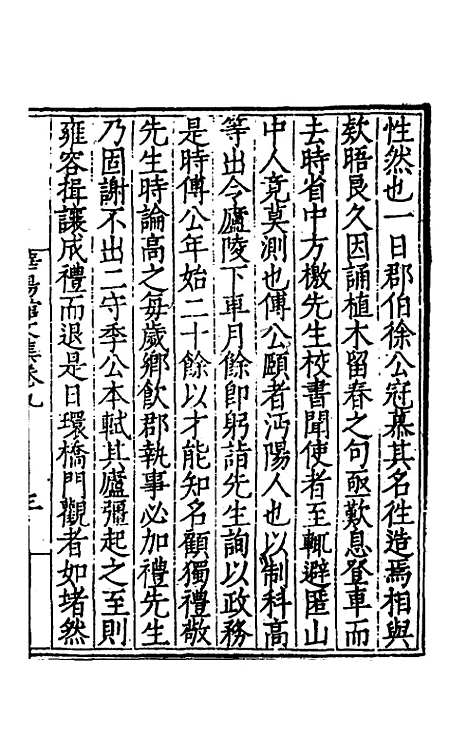 性然也一日郡伯徐公冠慕其名徃造焉相與
欵晤良久因誦植木留春之句亟歎息登車而
去時省中方檄先生校書聞使者至輒避匿山
中人竟莫測也傅公頤者沔陽人也以制科高
等出令廬陵下車月餘即躬詣先生詢以政務
是時傅公年始二十餘以才能知名顧獨禮敬
先生時論高之每歲鄉飲郡執事必加禮先生
乃固謝不出二守季公本軾其廬彊起之至則
雍容揖讓成禮而退是日環橋門觀者如堵然
華陽館文集卷九
三